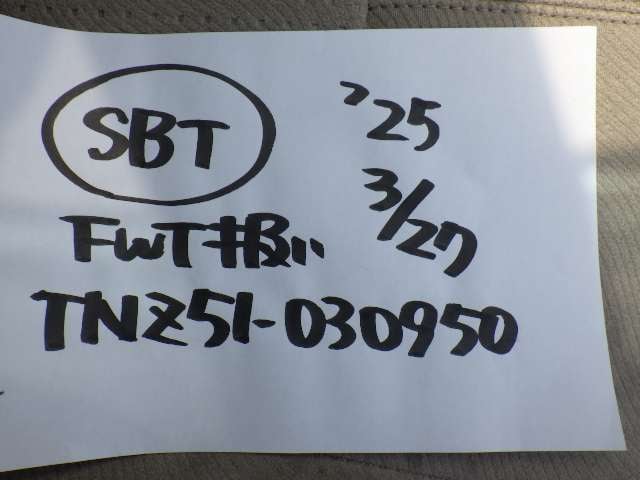 SBT
'25
3/27
FWT扱い
TNZ51-030950